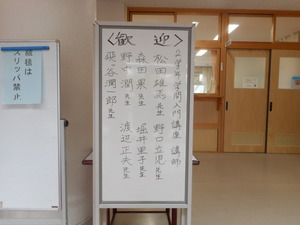 〈歓迎〉
2学年学問入門講座 講師
松田雄馬先生
野口立児先生
森田果先生
堀井里子先生
野中潤先生
渡辺正夫先生
飛ヶ谷潤一郎先生
スリッパ禁止